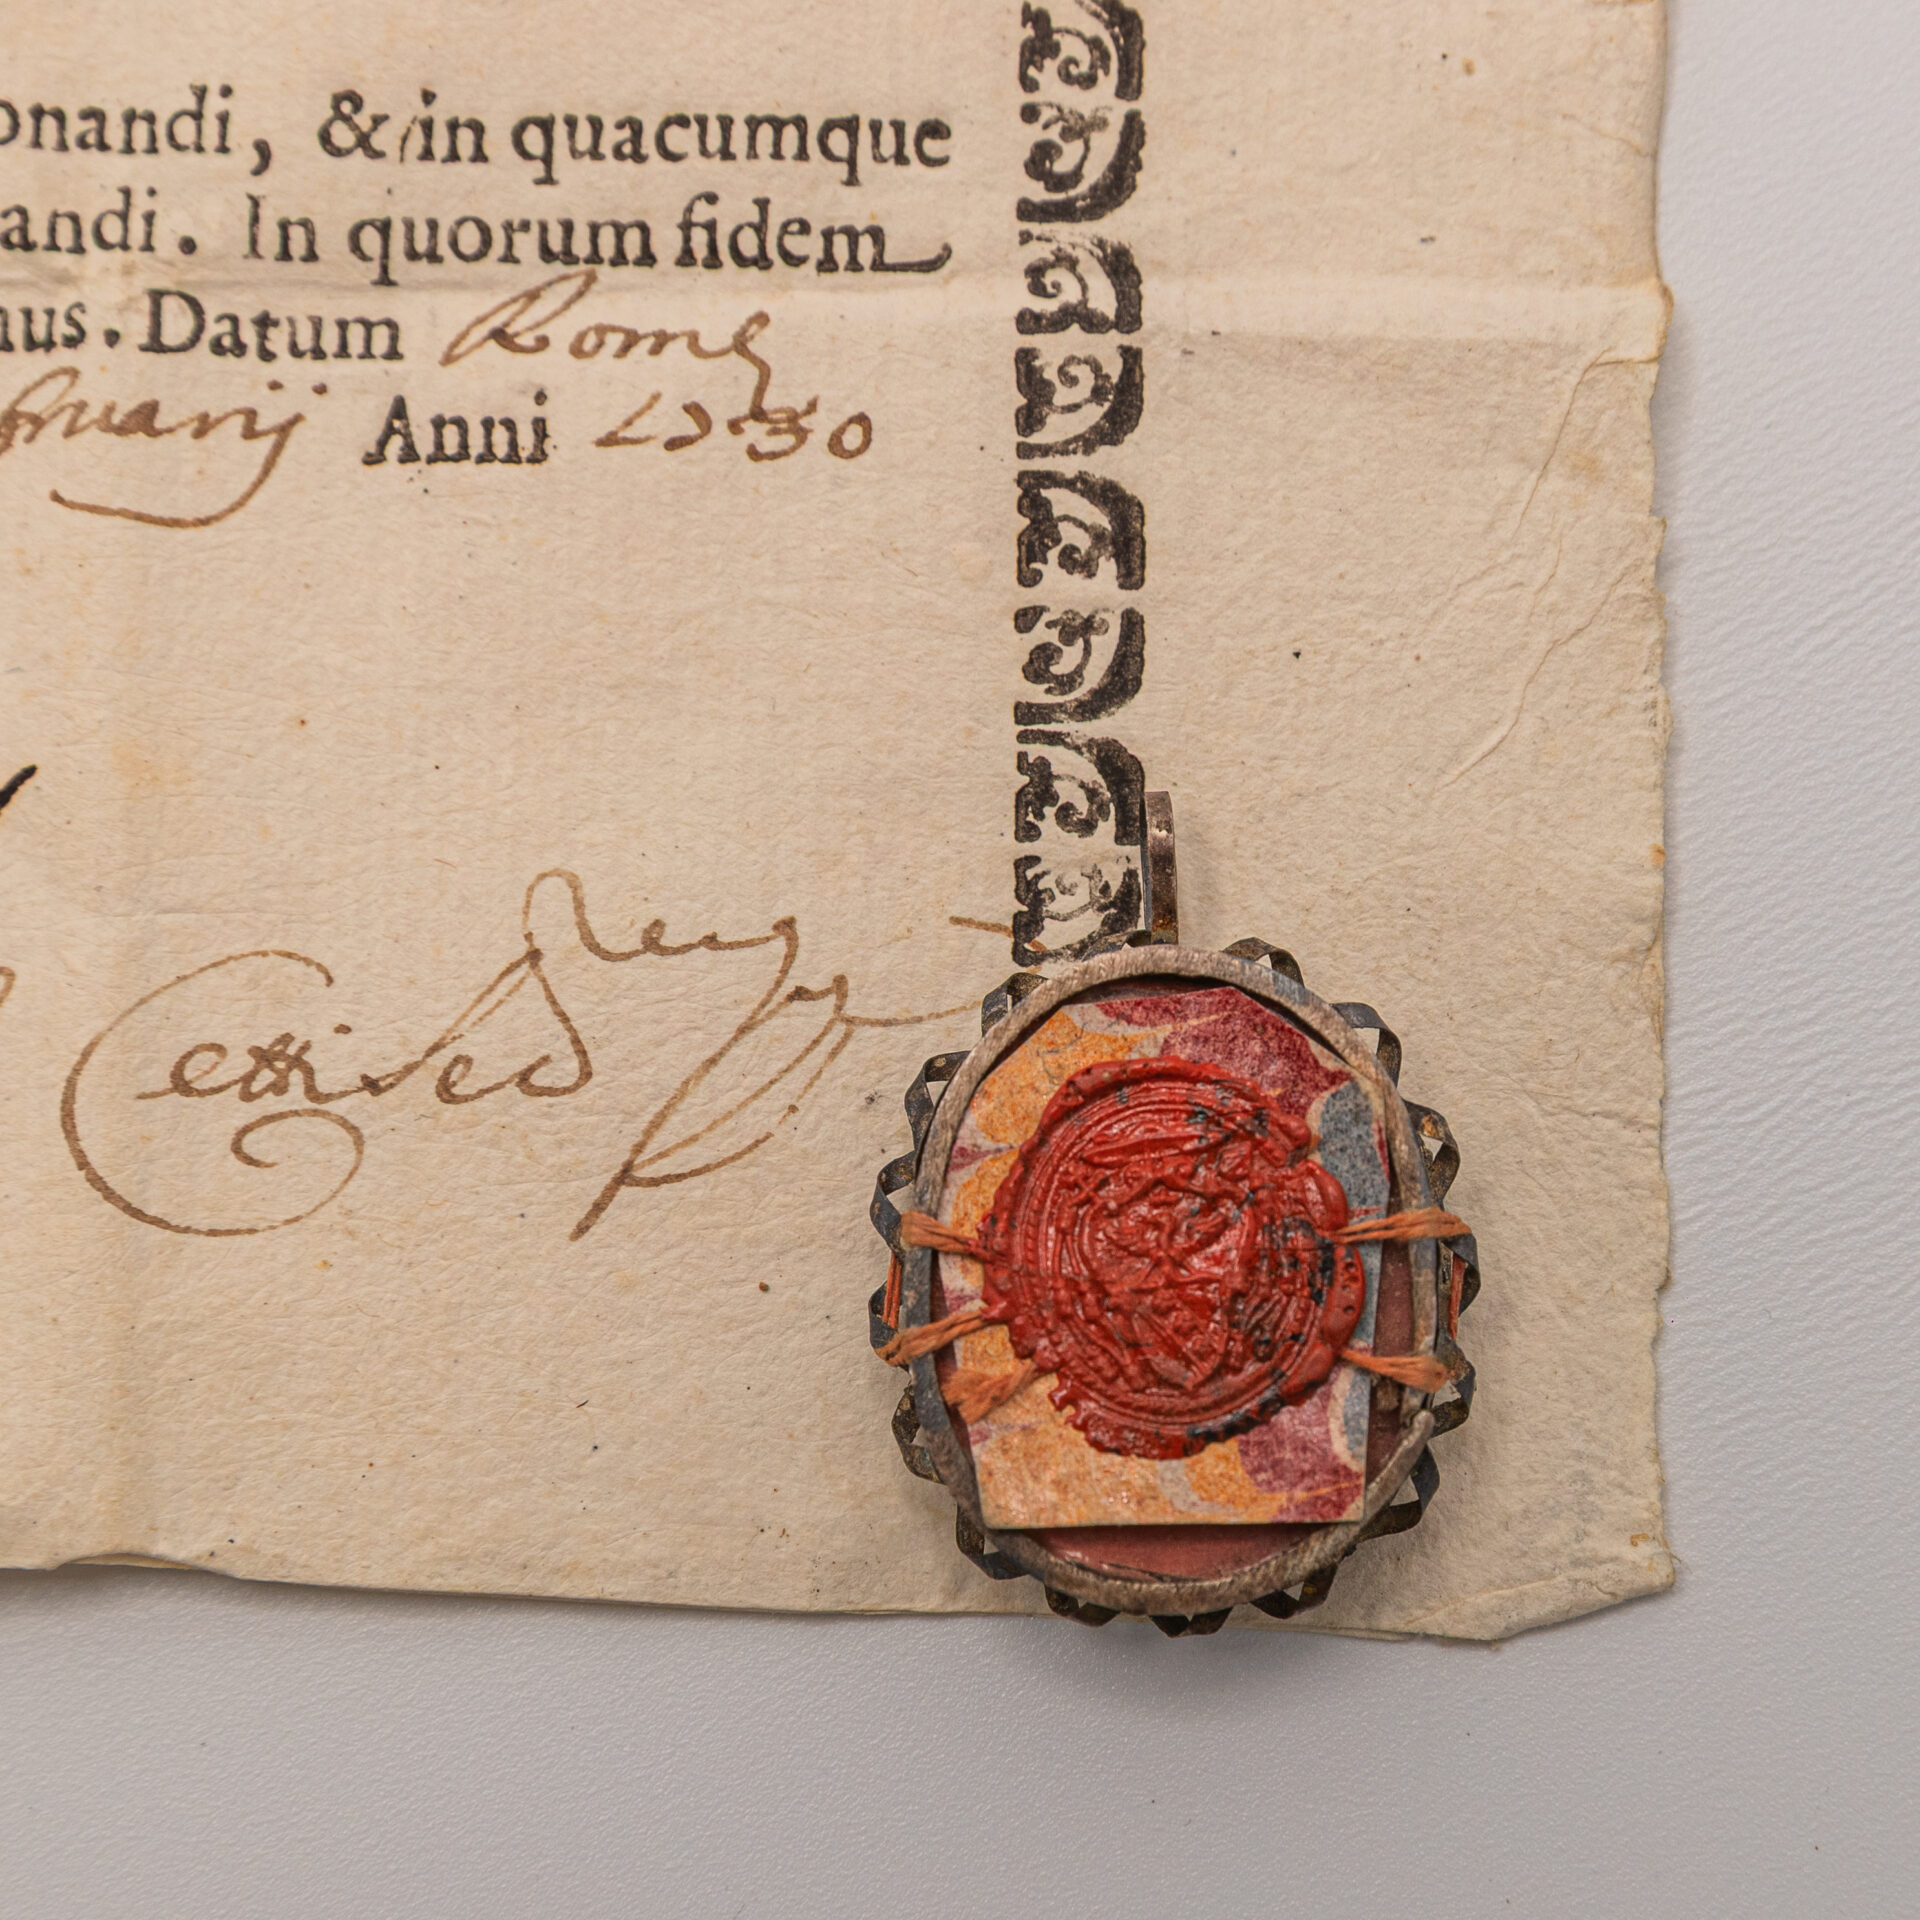 onandi, & in quacumque
andi. In quorum fidem
mus. Datum Romę
bruarij Anni 1730